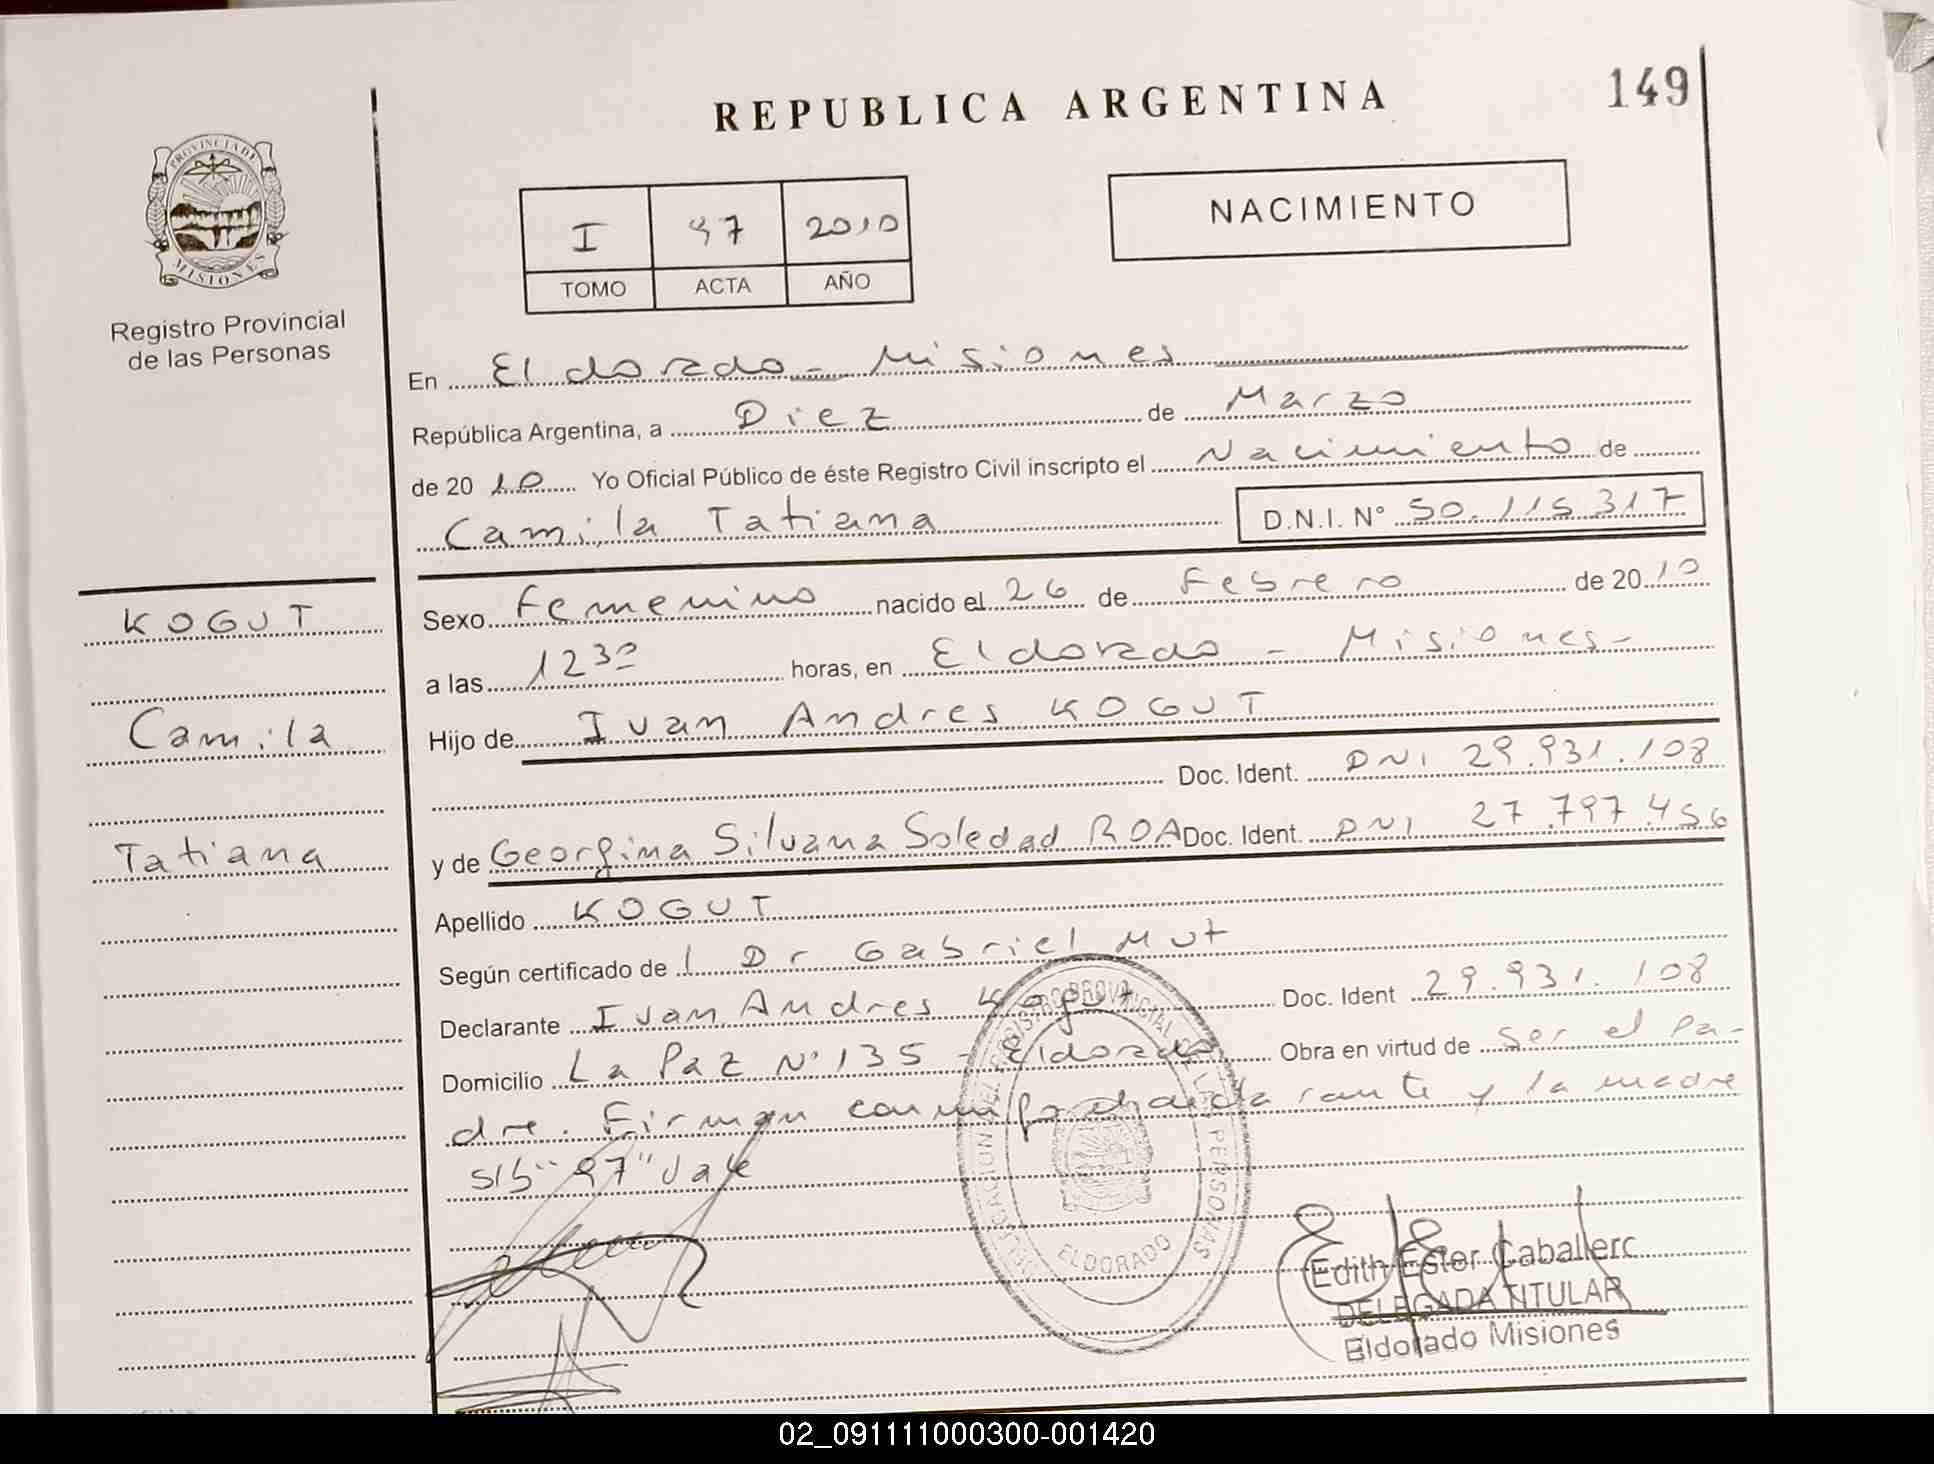 REPUBLICA ARGENTINA
149
PROVINCIA DE
MISIONES
Registro Provincial
de las Personas
I 97 2010
TOMO ACTA AÑO
NACIMIENTO
En Eldorado - Misiones
República Argentina, a Diez de Marzo
de 20 10 Yo Oficial Público de éste Registro Civil inscripto el Nacimiento de
Camila Tatiana D.N.I. N° 50.115.317
KOGUT
Camila
Tatiana
Sexo Femenino nacido el 26 de Febrero de 20 10
a las 12 30 horas, en Eldorado - Misiones-
Hijo de Ivan Andres KOGUT
Doc. Ident. DNI 29.931.108
y de Georgina Silvana Soledad ROA Doc. Ident. DNI 27.797.456
Apellido KOGUT
Según certificado de l Dr Gabriel Mut
Declarante Ivan Andres Kogut Doc. Ident 29.931.108
Domicilio La Paz N° 135 - Eldorado Obra en virtud de ser el Pa-
dre. Firman conmigo declarante y la madre
S/b "97" Vale
REGISTRO PROVINCIAL DE LAS PERSONAS
ELDORADO
Edith Ester Caballero
DELEGADA TITULAR
Eldorado Misiones
02_091111000300-001420